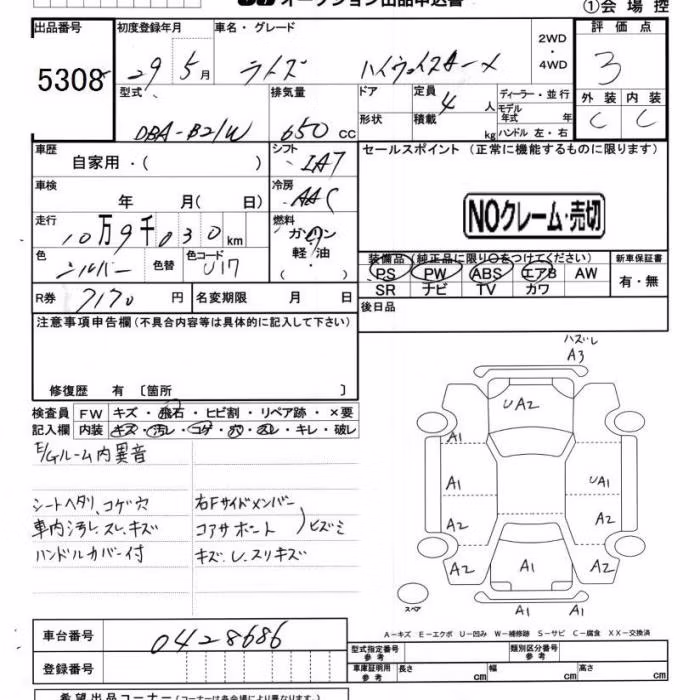 オークション出品申込書
①会場控
出品番号 初度登録年月 車名・グレード 2WD・4WD 評価点
5308 29 5月 ライズ 3
型式 排気量 ドア 定員 4人 ディーラー・並行 外装 内装
DBA-B21W 650cc 形状 積載 kg モデル年式 年 ハンドル 左・右 C C
車歴 シフト セールスポイント (正常に機能するものに限ります)
自家用・( ) IAT
車検 冷房
年 月( 日) AAC
NOクレーム・売切
走行 燃料
10万9千030km ガソリン 軽油 ( )
装備品 (純正品に限り○をつけてください) 新車保証書
色 シルバー 色替 色コード U17
PS PW ABS エアB AW 有・無
SR ナビ TV カワ
R券 7170円 名変期限 月 日 後日品
注意事項申告欄(不具合内容等は具体的に記入して下さい)
修復歴 有 〔箇所 〕
検査員 FW キズ・飛石・ヒビ割・リペア跡・×要
記入欄 内装 キズ・汚レ・コゲ・穴・スレ・キレ・破レ
E/Gルーム内異音
シートヘタリ、コゲ穴 右Fサイドメンバー
車内汚レ、スレ、キズ コアサポート)ヒズミ
ハンドルカバー付 キズ
スリキズ
ハズレ
A3
UA2
A1 A1
A1 UA1
A2 A2
A2 A1 A2
A1 A1
スペア
A-キズ E-エクボ U-凹み W-補修跡 S-サビ C-腐食 XX-交換済
車台番号 0428686
登録番号
型式指定番号 参考 類別区分番号 参考
車庫証明用 参考 長さ cm 幅 cm 高さ cm
希望出品コーナー(コーナーは各会場により異なります。)